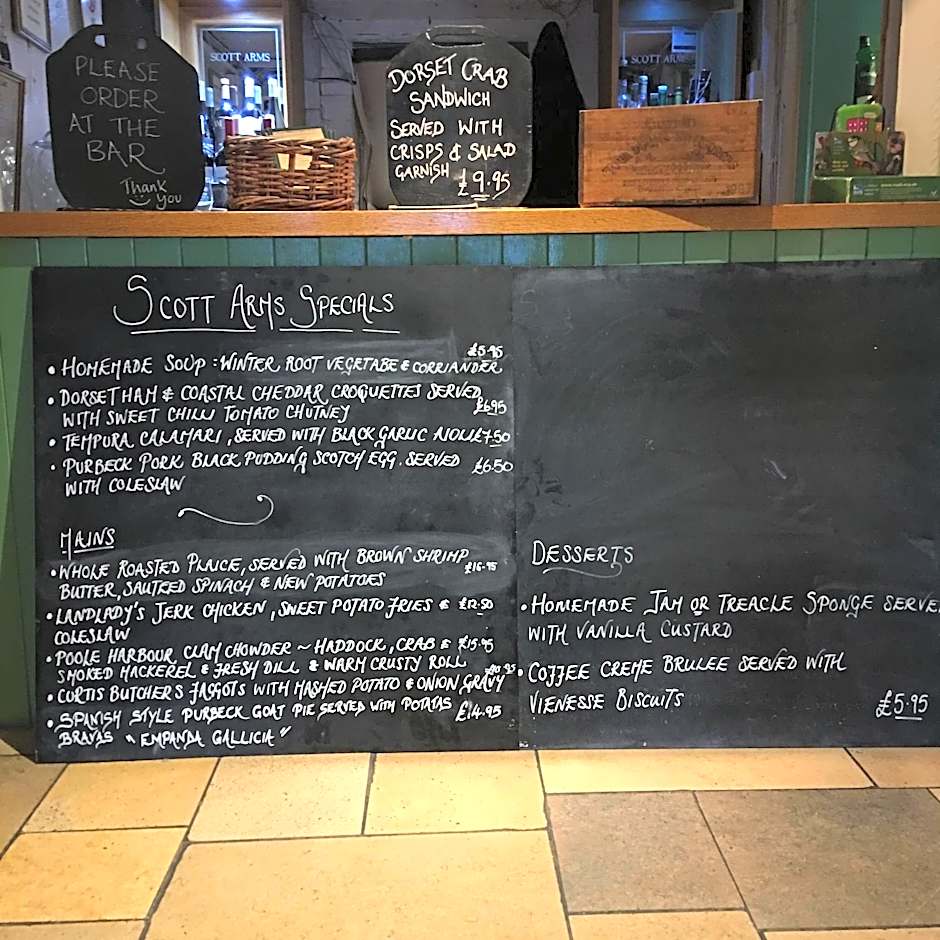 PLEASE
ORDER
AT THE
BAR
Thank
you
SCOTT ARMS
DORSET CRAB
SANDWICH
SERVED WITH
CRISPS & SALAD
GARNISH £9.95
SCOTT ARMS
SCOTT ARMS SPECIALS
• HOMEMADE SOUP : WINTER ROOT VEGETABE & CORRIANDER £5.95
• DORSET HAM & COASTAL CHEDDAR CROQUETTES SERVED
WITH SWEET CHILLI TOMATO CHUTNEY £6.95
• TEMPURA CALAMARI, SERVED WITH BLACK GARLIC AIOLI £7.50
• PURBECK PORK BLACK PUDDING SCOTCH EGG. SERVED £6.50
WITH COLESLAW
MAINS
• WHOLE ROASTED PLAICE, SERVED WITH BROWN SHRIMP £16.95
BUTTER, SAUTEED SPINACH & NEW POTATOES
• LANDLADY'S JERK CHICKEN, SWEET POTATO FRIES & £12.50
COLESLAW
• POOLE HARBOUR CLAM CHOWDER ~ HADDOCK, CRAB & £15.95
SMOKED MACKEREL & FRESH DILL & WARM CRUSTY ROLL
• CURTIS BUTCHERS FAGGOTS WITH MASHED POTATO & ONION GRAVY
• SPANISH STYLE PURBECK GOAT PIE SERVED WITH POTATAS £14.95
BRAVAS "EMPANDA GALLICIA"
DESSERTS
• HOMEMADE JAM OR TREACLE SPONGE SERVE
WITH VANILLA CUSTARD
• COFFEE CREME BRULEE SERVED WITH
VIENESSE BISCUITS £5.95